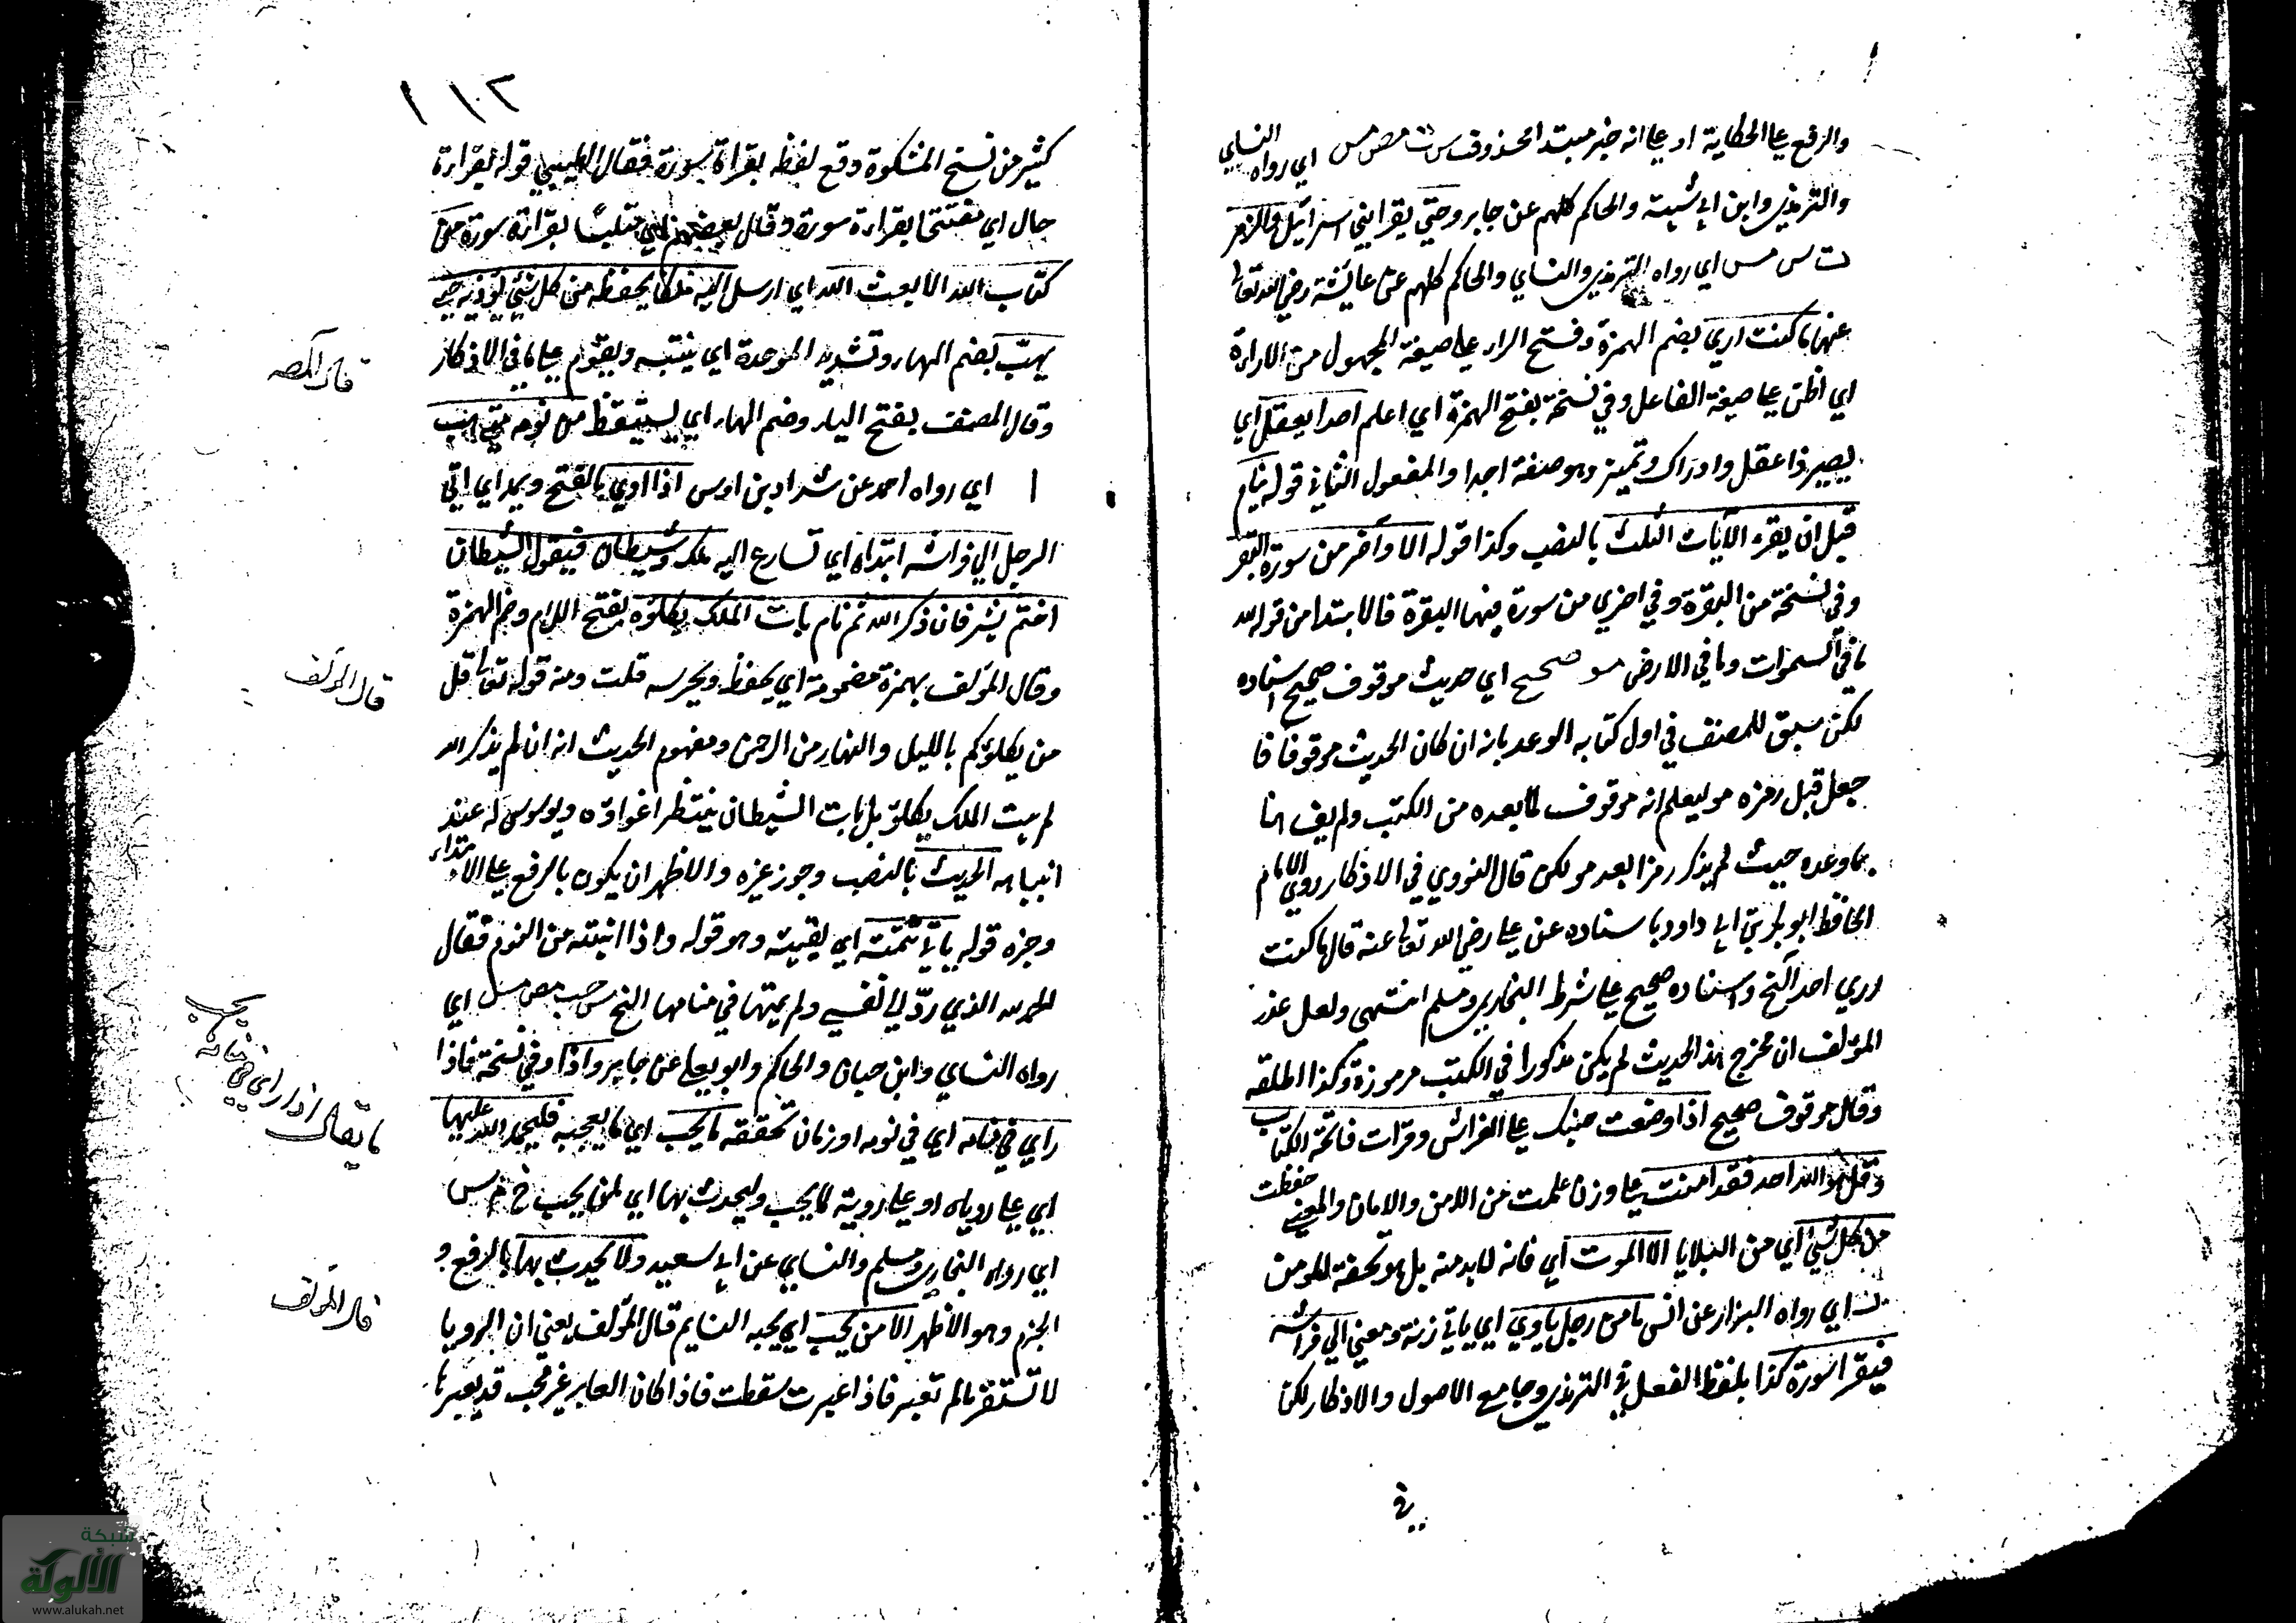 والرفع على الحكاية او على انه خبر مبتدا محذوف س ت مص مس اي رواه النساي
والترمذي وابن ابي شيبة والحاكم كلهم عن جابر وحتي يقرا بني اسرائيل والزمر
ت س مس اي رواه الترمذي والنساي والحاكم كلهم عن عايشة رضي الله تعا
عنها ما كنت اري بضم الهمزة وفتح الراء على صيغة المجهول من الاراءة
اي اظن على صيغة الفاعل وفي نسخة بفتح الهمزة اي اعلم احدا يعقل اي
يصير ذا عقل وادراك وتميز وهو صفة احدا والمفعول الثاني قوله ينام
قبل ان يقرء الآيات الثلث بالنصب وكذا قوله الاواخر من سورة البقر
وفي نسخة من البقرة وفي اخري من سورة فيها البقرة فالابتدا من قوله لله
ما في السموات وما في الارض مو صحيح اي حديث موقوف صحيح اسناده
لكن سبق للمصنف في اول كتابه الوعد بانه ان كان الحديث موقوفا فا
جعل قبل رمزه مو ليعلم انه موقوف لما بعده من الكتب ولم يف هنا
بما وعده حيث لم يذكر رمزا بعد مو لكن قال النووي في الاذكار روي الامام
الحافظ ابو بكر بن ابي داود باسناده عن علي رضي الله تعا عنه قال ما كنت
اري احدا الخ واسناده صحيح على شرط البخاري ومسلم انتهى ولعل عذر
المؤلف ان مخرج هذا الحديث لم يكن مذكورا في الكتب مرموزة وكذا اطلقه
وقال موقوف صحيح اذا وضعت جنبك على الفراش وقرات فاتحة الكتاب
وقل هو الله احد فقد امنت على وزن علمت من الامن والامان والمعني حفظت
من كل شيء اي من البلايا الا الموت اي فانه لا بد منه بل هو تحفة للمومن
اي رواه البزار عن انس ما من رجل ياوي اي ياتي زنة ومعني الي فراشه
فيقرا سورة كذا بلفظ الفعل في الترمذي وجامع الاصول والاذكار لكنا
في
١٠٢
كثير من نسخ المشكوة وقع لفظ بقراة سورة فقال الطيبي قوله بقراءة
حال اي مفتتحا بقراءة سورة وقال بعضهم اي متلبسا بقراءة سورة من
كتاب الله الا بعث الله اي ارسل اليه ملكا يحفظه من كل شيء يؤذيه حتي
يهب بضم الهاء وتشديد الموحدة اي ينتبه ويقوم على ما في الاذكار
وقال المصنف بفتح الياء وضم الهاء اي يستيقظ من نومه متي هب
ا اي رواه احمد عن شداد بن اوس اذا اوي بالفتح ويمد اي اتي
الرجل الي فراشه ابتداه اي تسارع اليه ملك وشيطان فيقول الشيطان
اختم بشر فان ذكر الله ثم نام بات الملك يكلؤه بفتح اللام وضم الهمزة
وقال المؤلف بهمزة مضمومة اي يحفظه ويحرسه قلت ومنه قوله تعا قل
من يكلؤكم بالليل والنهار من الرحمن ومفهوم الحديث انه ان لم يذكر الله
لم يبت الملك يكلؤ بل بات الشيطان ينتظر اغواؤه ويوسوس له عند
انتباهه الحديث بالنصب وجوز غيره والاظهر ان يكون بالرفع على الابتداء
وخبره قوله ياتي تتمته اي بقيته وهو قوله واذا انتبه من النوم فقال
الحمد لله الذي رد الي نفسي ولم يمتها في منامها الخ س حب مص مس اي
رواه النساي وابن حبان والحاكم وابو يعلى عن جابر واذا وفي نسخة فاذا
راي في منامه اي في نومه او زمان تحققه ما يحب اي ما يعجبه فليحمد الله عليها
اي على روياه او على روية ما يحب وليحدث بها اي لمن يحب خ م س
اي رواه البخاري ومسلم والنساي عن ابي سعيد ولا يحدث بها بالرفع و
الجزم وهو الاظهر الا من يحب اي يحبه النايم قال المؤلف يعني ان الرويا
لا تستقر ما لم تعبر فاذا عبرت سقطت فاذا كان العابر غير محب قد يعبرها
قال المص
قال المؤلف
ما يقال اذا راي في منامه
يحب
قال المؤلف
شبكة
الألوكة
www.alukah.net